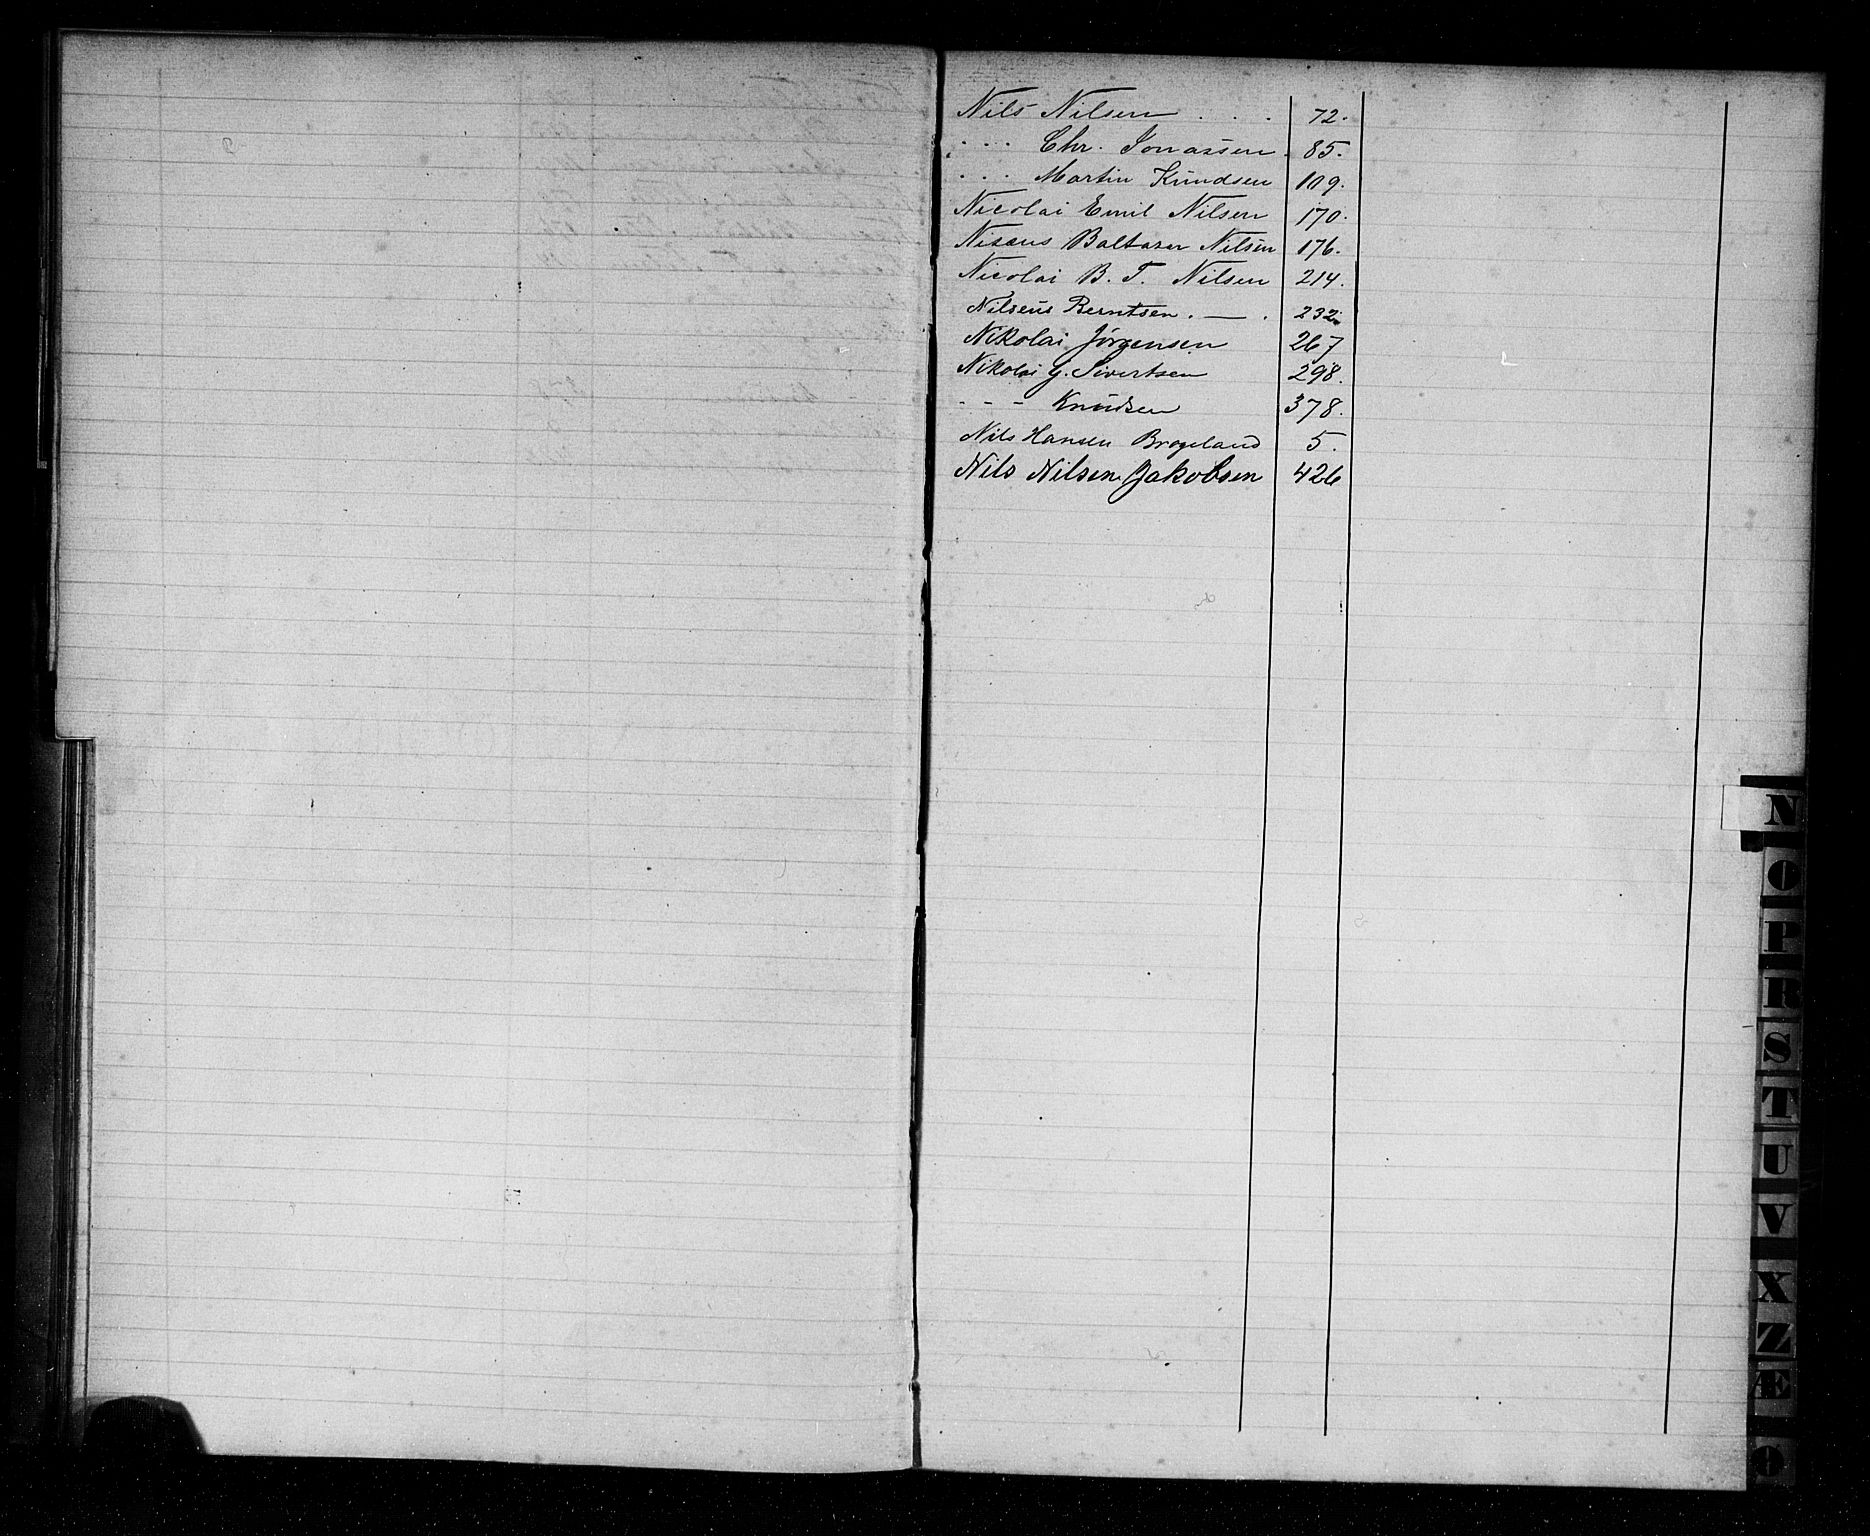 Nils Nilsen . . . 72.
. . . Chr. Jonassen . 85.
. . . Martin Knudsen 109.
Nicolai Emil Nilsen 170.
Nisæus Baltazer Nilsen 176.
Nicolai B. T. Nilsen 214.
Nilseus Berntsen . — . 232.
Nikolai Jørgensen 267
Nikolai G. Sivertsen 298.
- - - Knudsen 378.
Nils Hansen Brogeland 5.
Nils Nilsen Jakobsen 426
N
O
P
R
S
T
U
V
X
Z
Æ
Ø